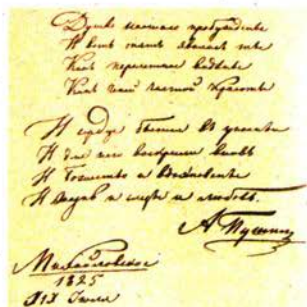 Душѣ настало пробужденье
И вотъ опять явилась ты
Какъ мимолетное видѣнье
Какъ геній чистой красоты
И сердце бьется въ упоеньи
И для него воскресли вновь
И божество и вдохновенье
И жизнь и слезы и любовь.
А Пушкин
Михайловское
1825